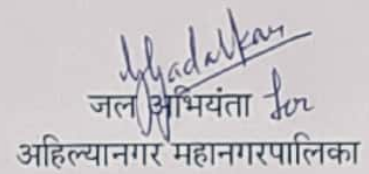 जल अभियंता for
अहिल्यानगर महानगरपालिका